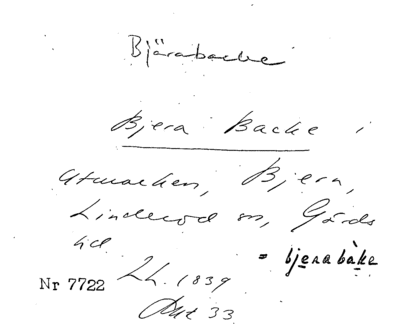 Bjärabacke
Bjera Backe i
Utmarken, Bjera,
Linderöd sn, Gärds
hd.
= bjerabàke
Nr 7722 LL. 1839
Akt 33